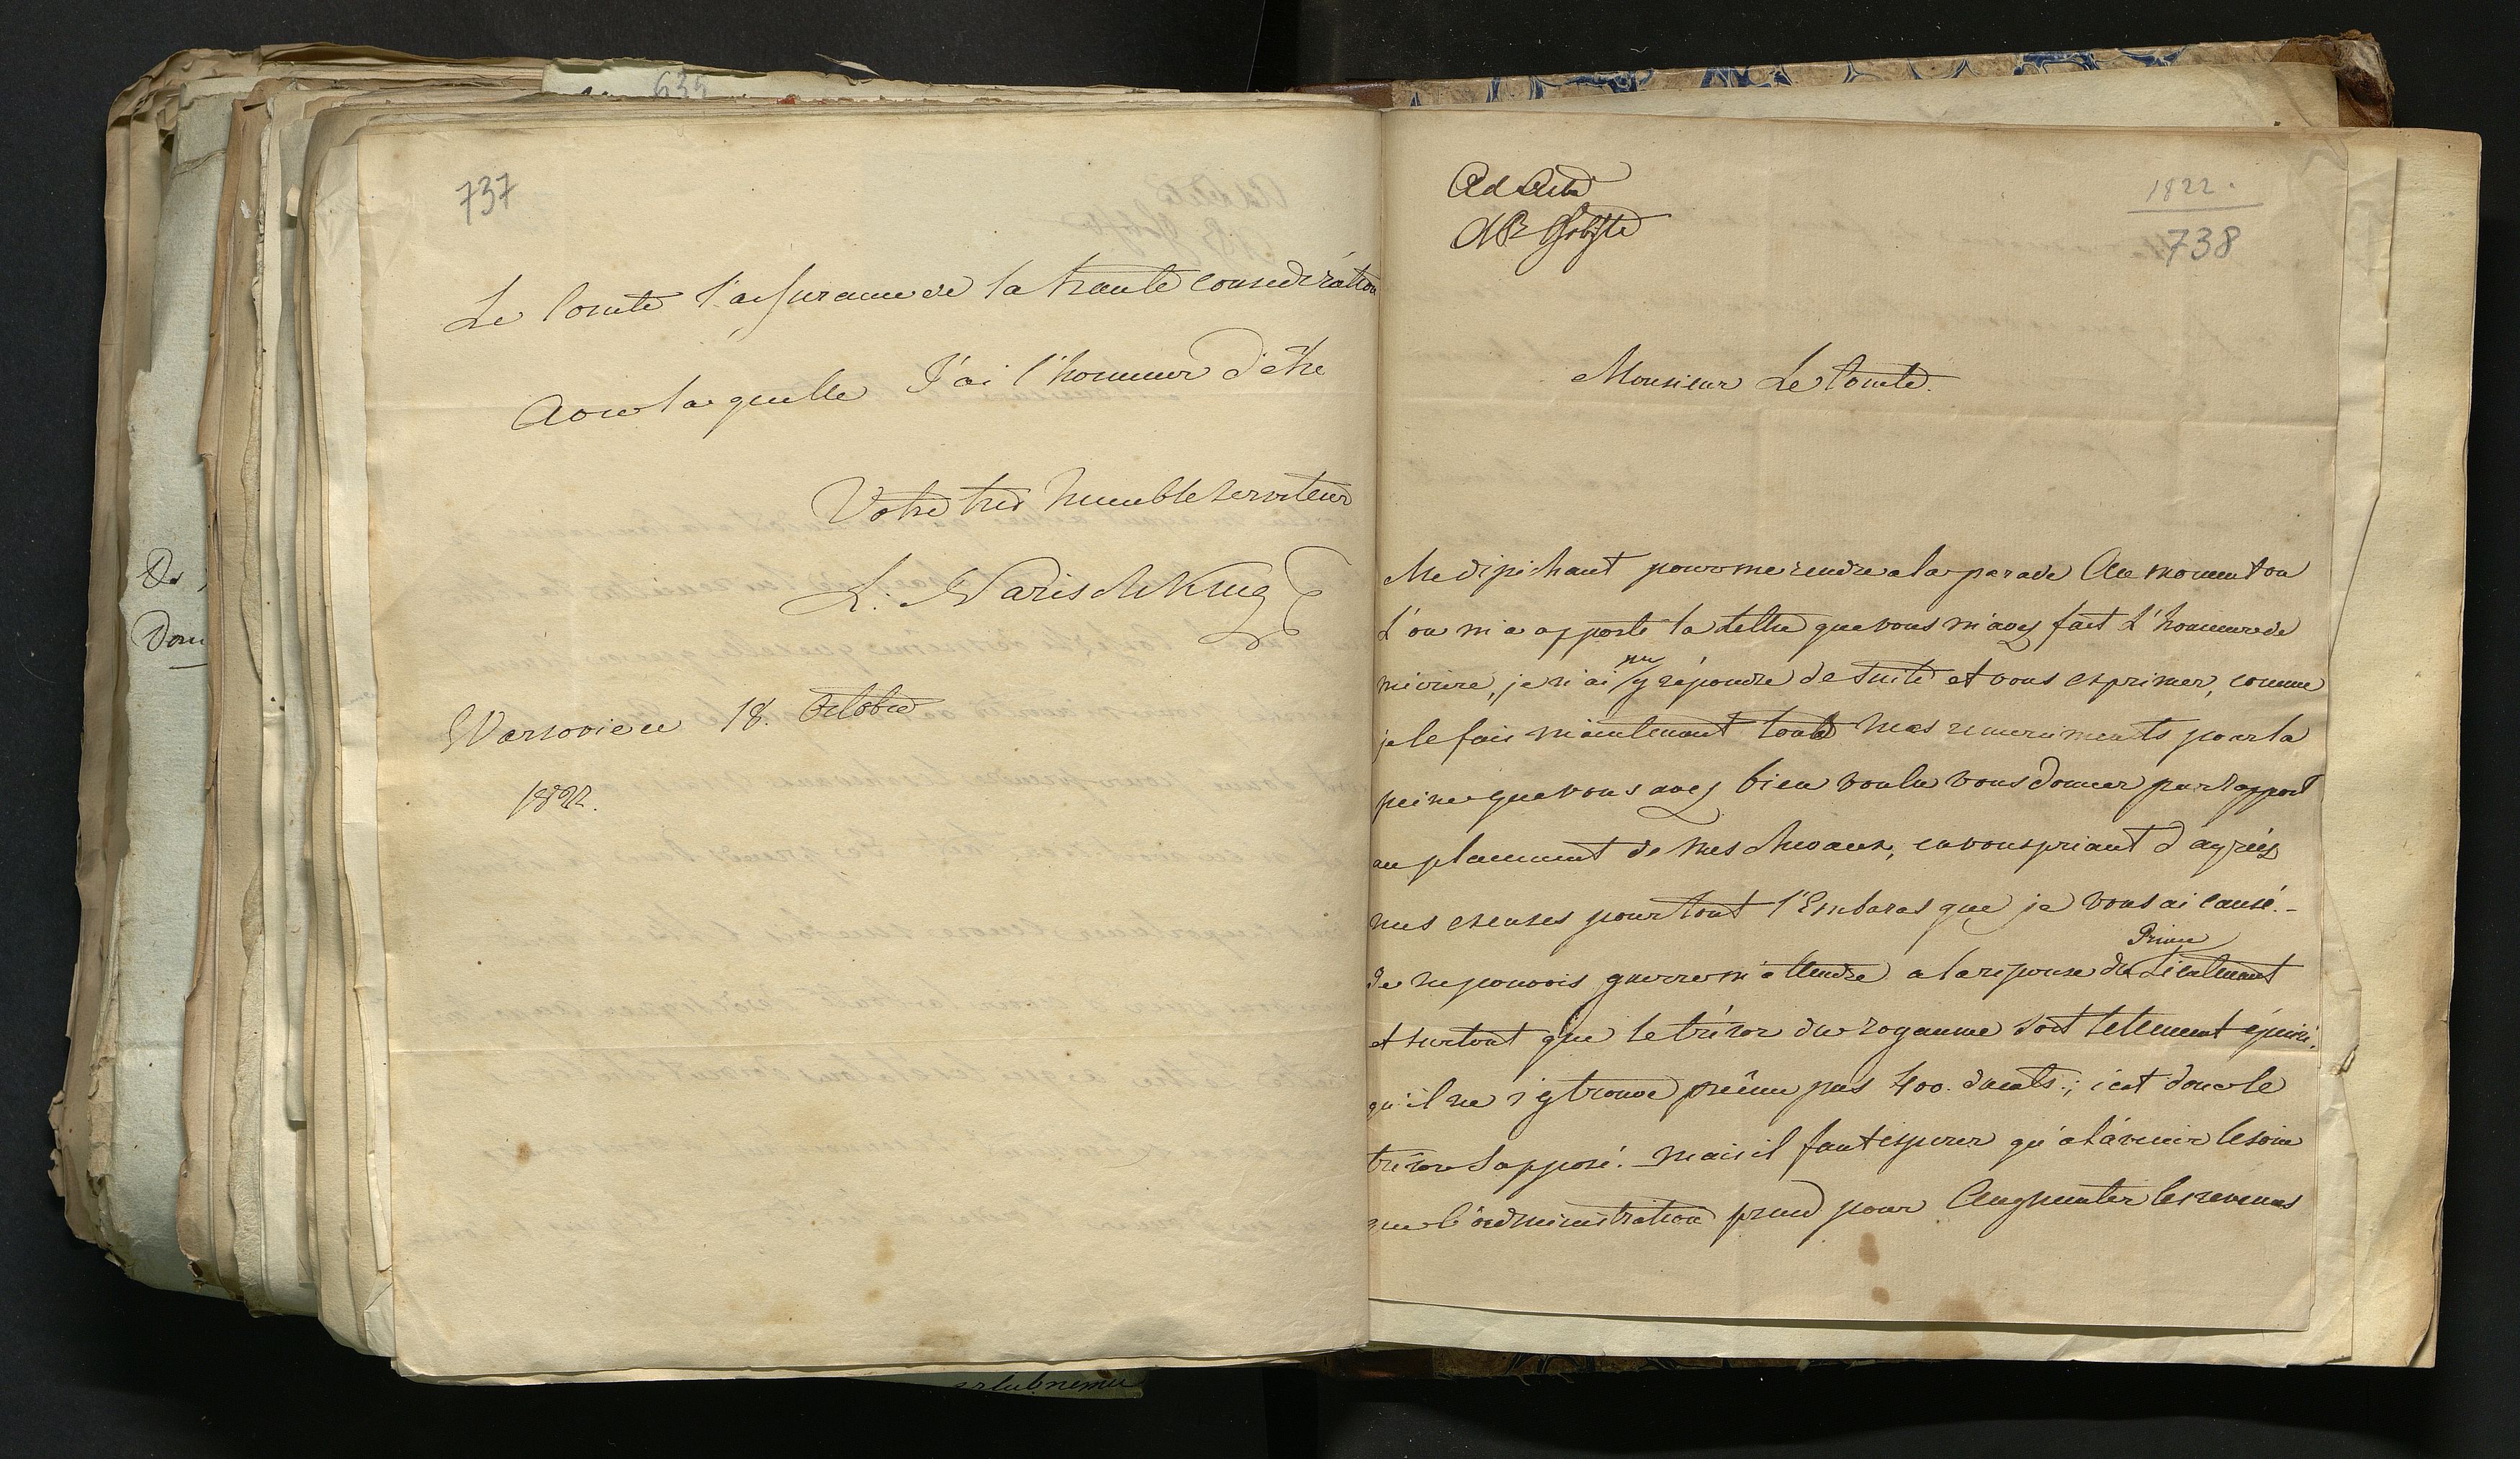 635
737
Le Comte l'assurance de la haute considération
Avec laquelle J'ai l'honneur d'être
Votre très humble serviteur
L: Narischking
Varsovie ce 18. Octobre
1822.
De
Dom
Ad Acta
1822.
738
Monsieur Le Comte.
Me dépêchant pour me rendre a la parade Au moment ou
L'on m'a apporté la Lettre que vous m'avez fait L'honneur de
m'écrire, je n'ai pu y répondre de suite et vous exprimer, comme
je le fais maintenant tous mes remerciments pour la
peine que vous avez bien voulu vous donner par rapport
au placement de mes chevaux, en vous priant d'agréez
mes excuses pour tout l'Embaras que je vous ai causé. -
Je ne pouvois guerre m'attendre a la réponse du Prince Lieutenant
et surtout que le trésor du royaume soit tellement épuisé.
qu'il ne s'y trouve même pas 400. ducats.; c'est donc le
trésor supposé. - Mais il faut esperer qu'a l'avenir le soin
que l'administration prend pour Augmenter les revenus